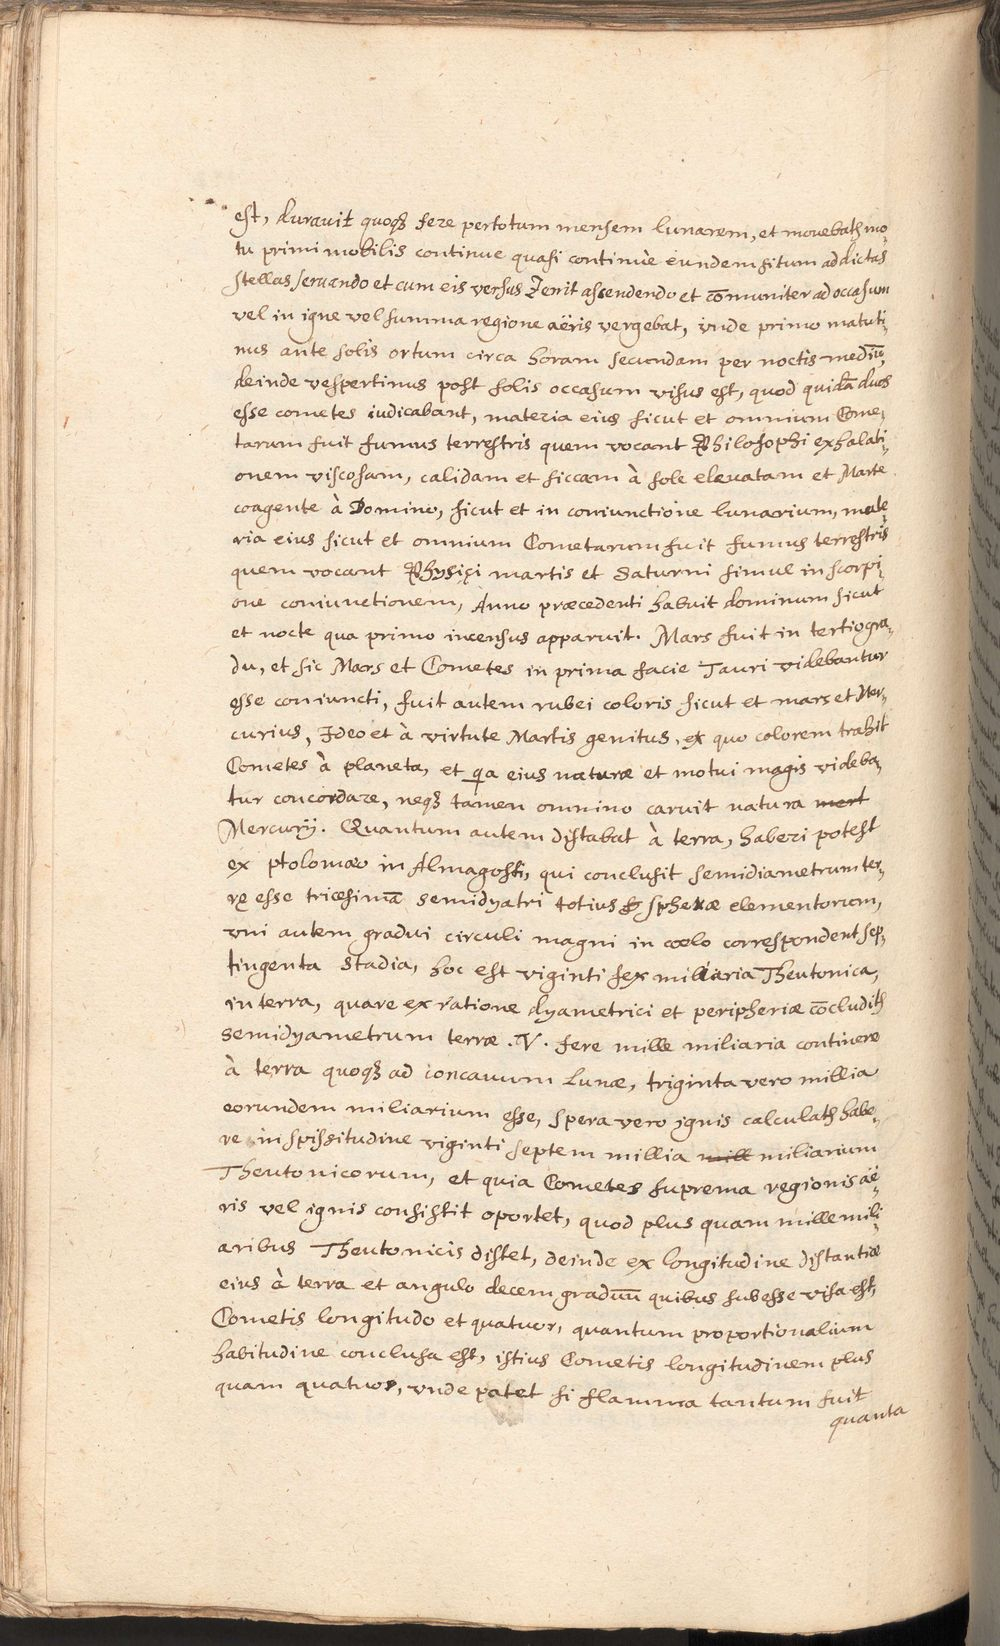 est, durauit quoqȝ fere per totum mensem lunarem, et mouebatȝ mo„
tu primi mobilis continue quasi continuè eundem situm ad dictas
stellas seruando et cum eis versus Zenit assendendo et com̄uniter ad occasum
vel in igne vel summa regione aëris vergebat, vnde primo matuti„
nus ante solis ortum circa horam secundam per noctis mediū,
deinde vespertinus post solis occasum visus est, quod quidā duos
esse cometes iudicabant, materia eius sicut et omnium Come„
tarum fuit fumus terrestris quem vocant Philosophi exhalati„
onem viscosam, calidam et siccam à sole eleuatam et Marte
coagente à Domino, sicut et in coniunctione lunarium, mate„
ria eius sicut et omnium Cometarum fuit fumus terrestris
quem vocant Physici martis et Saturni simul in scorpi„
one coniunctionem, Anno præcedenti habuit dominum sicut
et nocte qua primo incensus apparuit. Mars fuit in tertio gra„
du, et sic Mars et Cometes in prima facie Tauri videbantur
esse coniuncti, fuit autem rubei coloris sicut et mars et Mer„
curius, Ideo et à virtute Martis genitus, ex quo colorem trahit
Cometes à planeta, et qia eius naturæ et motui magis videba„
tur concordare, neqȝ tamen omnino caruit natura mert
Mercurij. Quantum autem distabat à terra, haberi potest
ex ptolomæo in Almagosti, qui conclusit semidiametrum ter„
rę esse tricesimā semidyatri totius sphexæ elementorum,
vni autem gradui circuli magni in cœlo correspondent sep„
tingenta stadia, hoc est viginti sex miliaria Theutonica,
in terra, quare ex ratione dyametrici et peripheriæ cōcluditȝ
semidyametrum terræ .V. fere mille miliaria continere
à terra quoqȝ ad concauum Lunæ, triginta vero millia
eorundem miliarium esse, spera vero ignis calculatȝ habe„
re in spissitudine viginti septem millia mill miliarium
Theutonicorum, et quia Cometes suprema regionis aë„
ris vel ignis consistit oportet, quod plus quam mille mili„
aribus Theutonicis distet, deinde ex longitudine distantiæ
eius à terra et angulo decem graduū quibus subesse visa est,
Cometis longitudo et quatuor, quantum proportionalium
habitudine conclusa est, istius Cometis longitudinem plus
quam quatuor, vnde patet si flamma tantum fuit
quanta